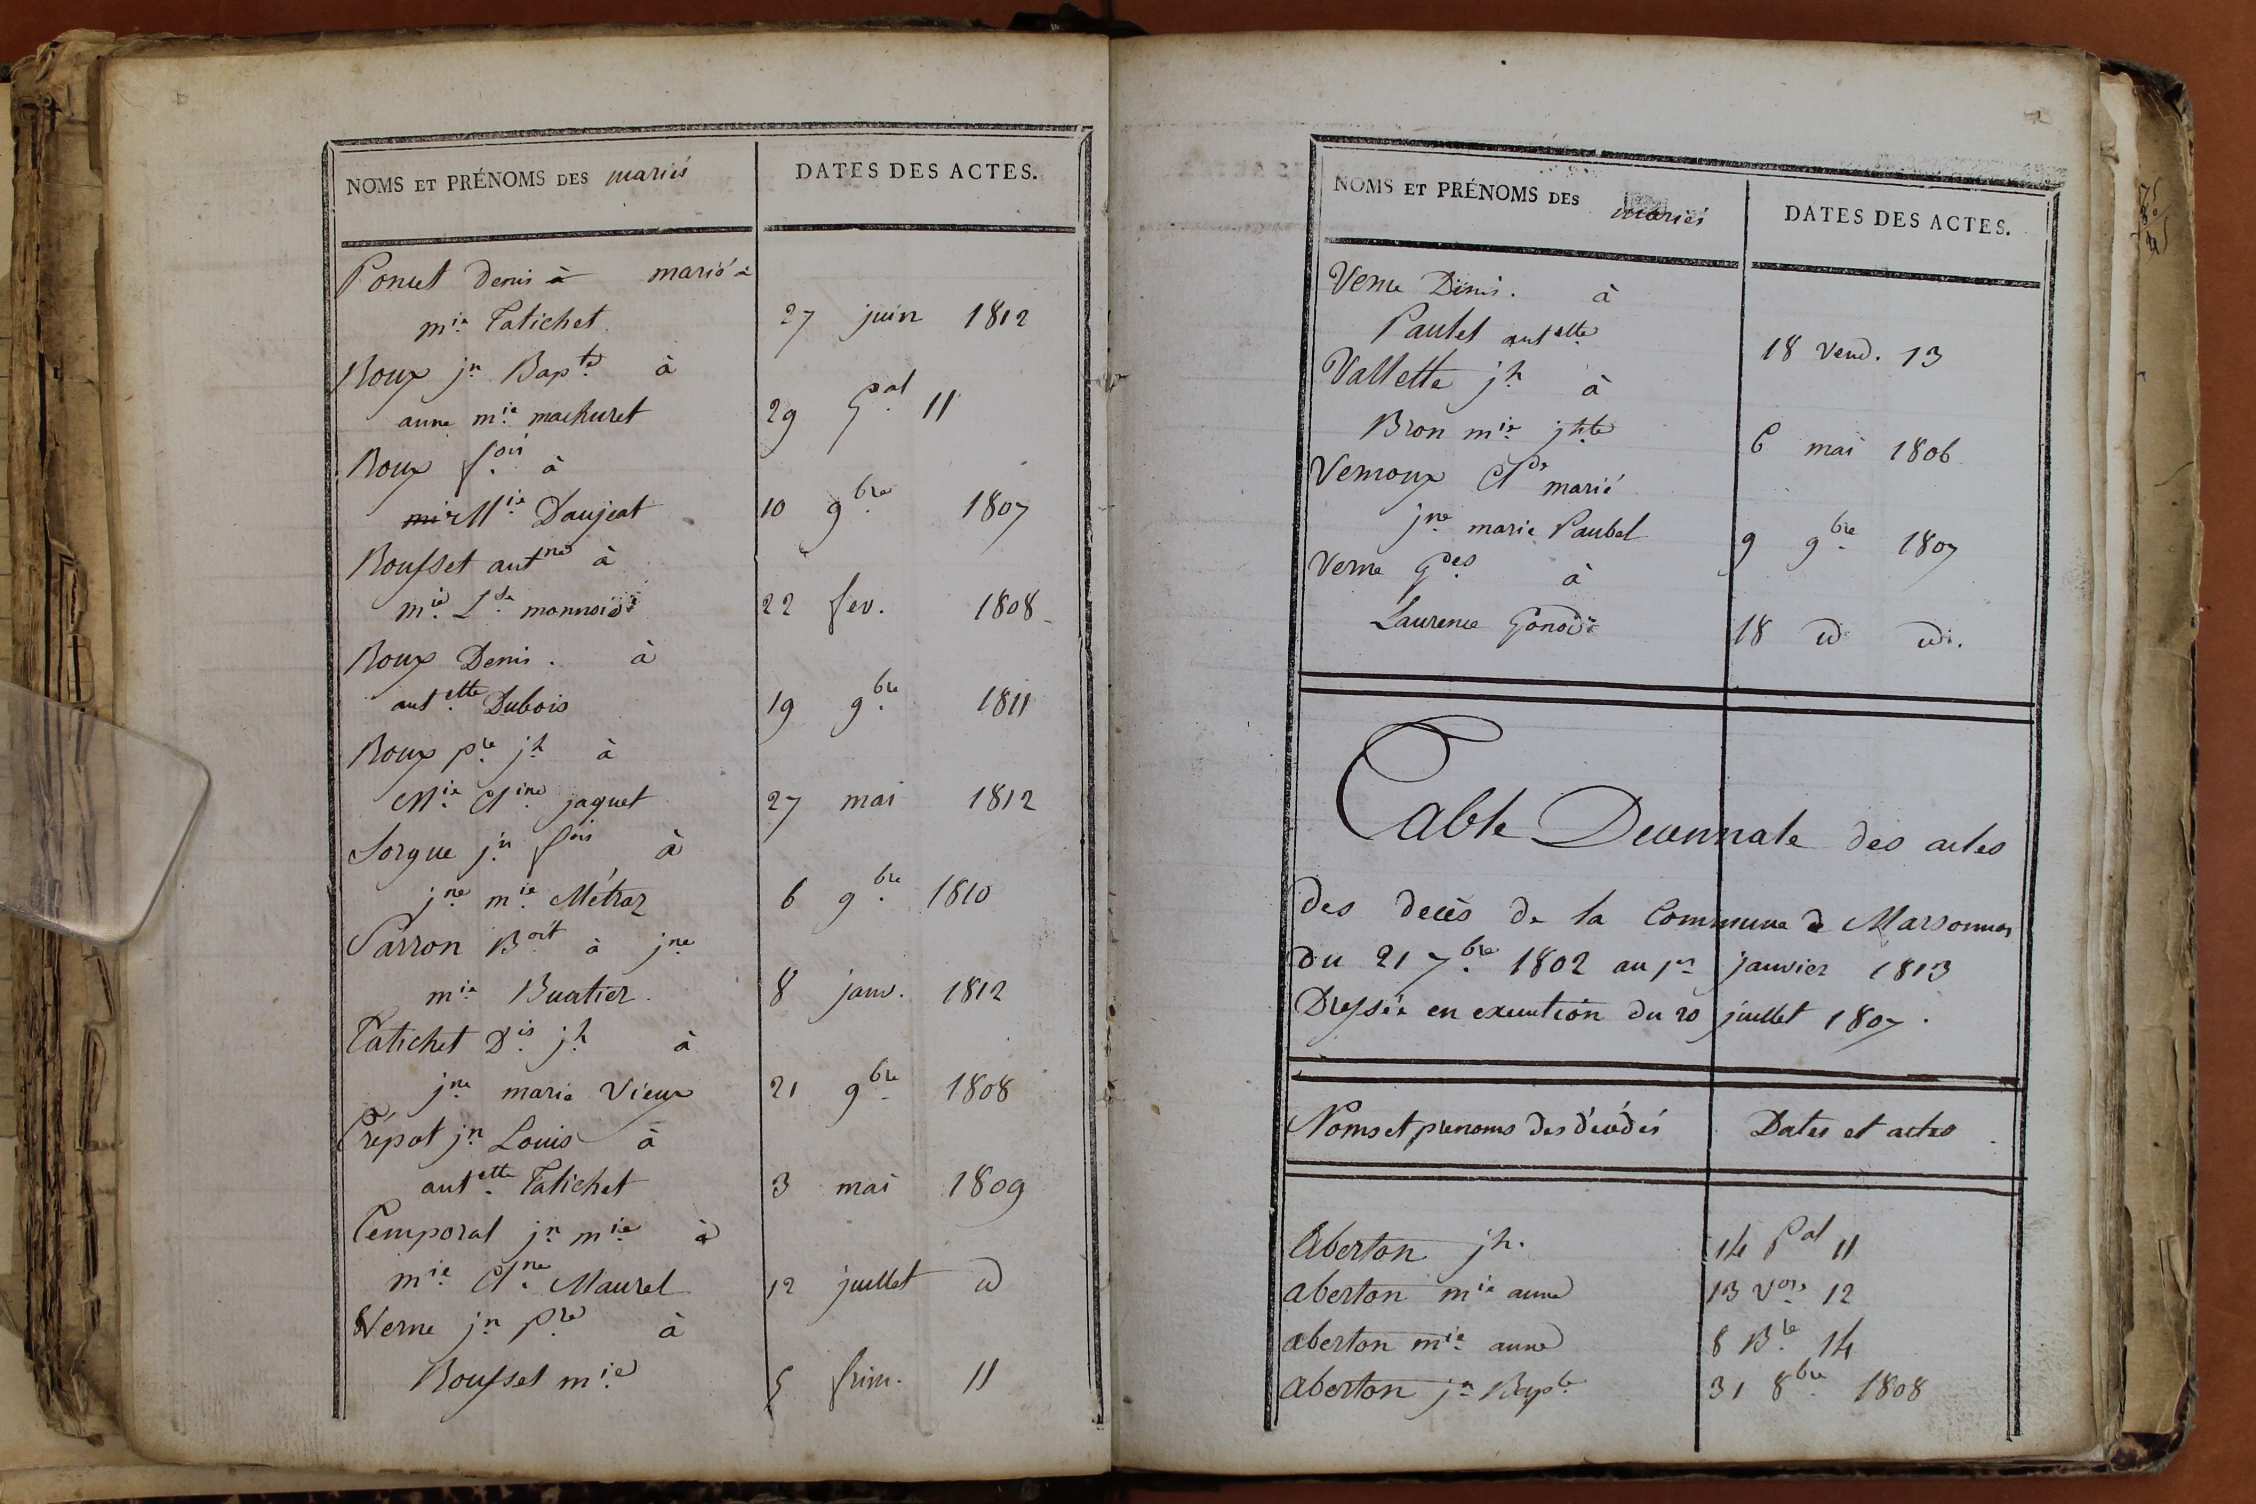 NOMS ET PRÉNOMS DES mariés
DATES DES ACTES.
Poncet Denis à marié à
mie Tatichet 27 juin 1812
Roux jn Bapte à
anne mie machuret 29 Gal 11
Roux fois à
Mie Daujeat 10 9bre 1807
Rousset antne à
mie Lse monnoid 22 fev. 1808
Roux Denis. à
antette Dubois 19 9bre 1811
Roux pre jh à
Mie Cine jaquet 27 mai 1812
Sorgue jn fois à
jne mie Métraz 6 9bre 1810
Sarron Boit à jne
mie Buatier 8 janv. 1812
Tatichet Dis jh à
jne marie Vieux 21 9bre 1808
Trépot jn Louis à
antette Tatichet 3 mai 1809
Temporal jn mie à
mie Cne Maurel 12 juillet id
Verne jn pre à
Rousset mie 5 frim. 11
NOMS ET PRÉNOMS DES mariés
DATES DES ACTES.
Verne Denis. à
Paulet antette 18 Vend. 13
Vallette jh à
Bron mie jhte 6 mai 1806
Vernoux Cde marié
jne marie Paubel 9 9bre 1807
Verne Gdes à
Laurence Gonod 18 id id.
Table Decennale des actes
des decès de la Commune de Marsonnas
du 21 7bre 1802 au 1er janvier 1813
Dressée en execution du 20 juillet 1807.
Noms et prenoms des décédés Dates et actes
Aberton jh. 14 Pal 11
aberton mie anne 13 Vose 12
aberton mie anne 8 Bre 14
aberton jn Bapte 31 8bre 1808